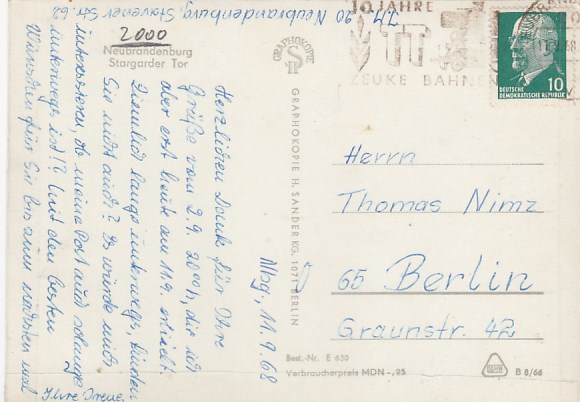 Nbg, 11.9.68
Herzlichen Dank für Ihre
Grüße vom 2.9. 2001, die ich
aber erst heute am 11.9. erhielt.
Ziemlich lange unterwegs, finden
Sie nicht auch? Es würde mich
interessieren, ob meine Post auch solange
unterwegs ist!? Mit den besten
Wünschen für Sie bis zum nächsten mal
Ihre Irene.
90 Neubrandenburg, Stavener Str.
2000
Neubrandenburg
Stargarder Tor
GRAPHOKOPIE
GRAPHOKOPIE H. SANDER KG, 1071 BERLIN
10 JAHRE
ZEUKE BAHNEN
DEUTSCHE
DEMOKRATISCHE REPUBLIK
10
Herrn
Thomas Nimz
65 Berlin
Graunstr. 42
Best.-Nr. E 630
Verbraucherpreis MDN -,25
B 8/66